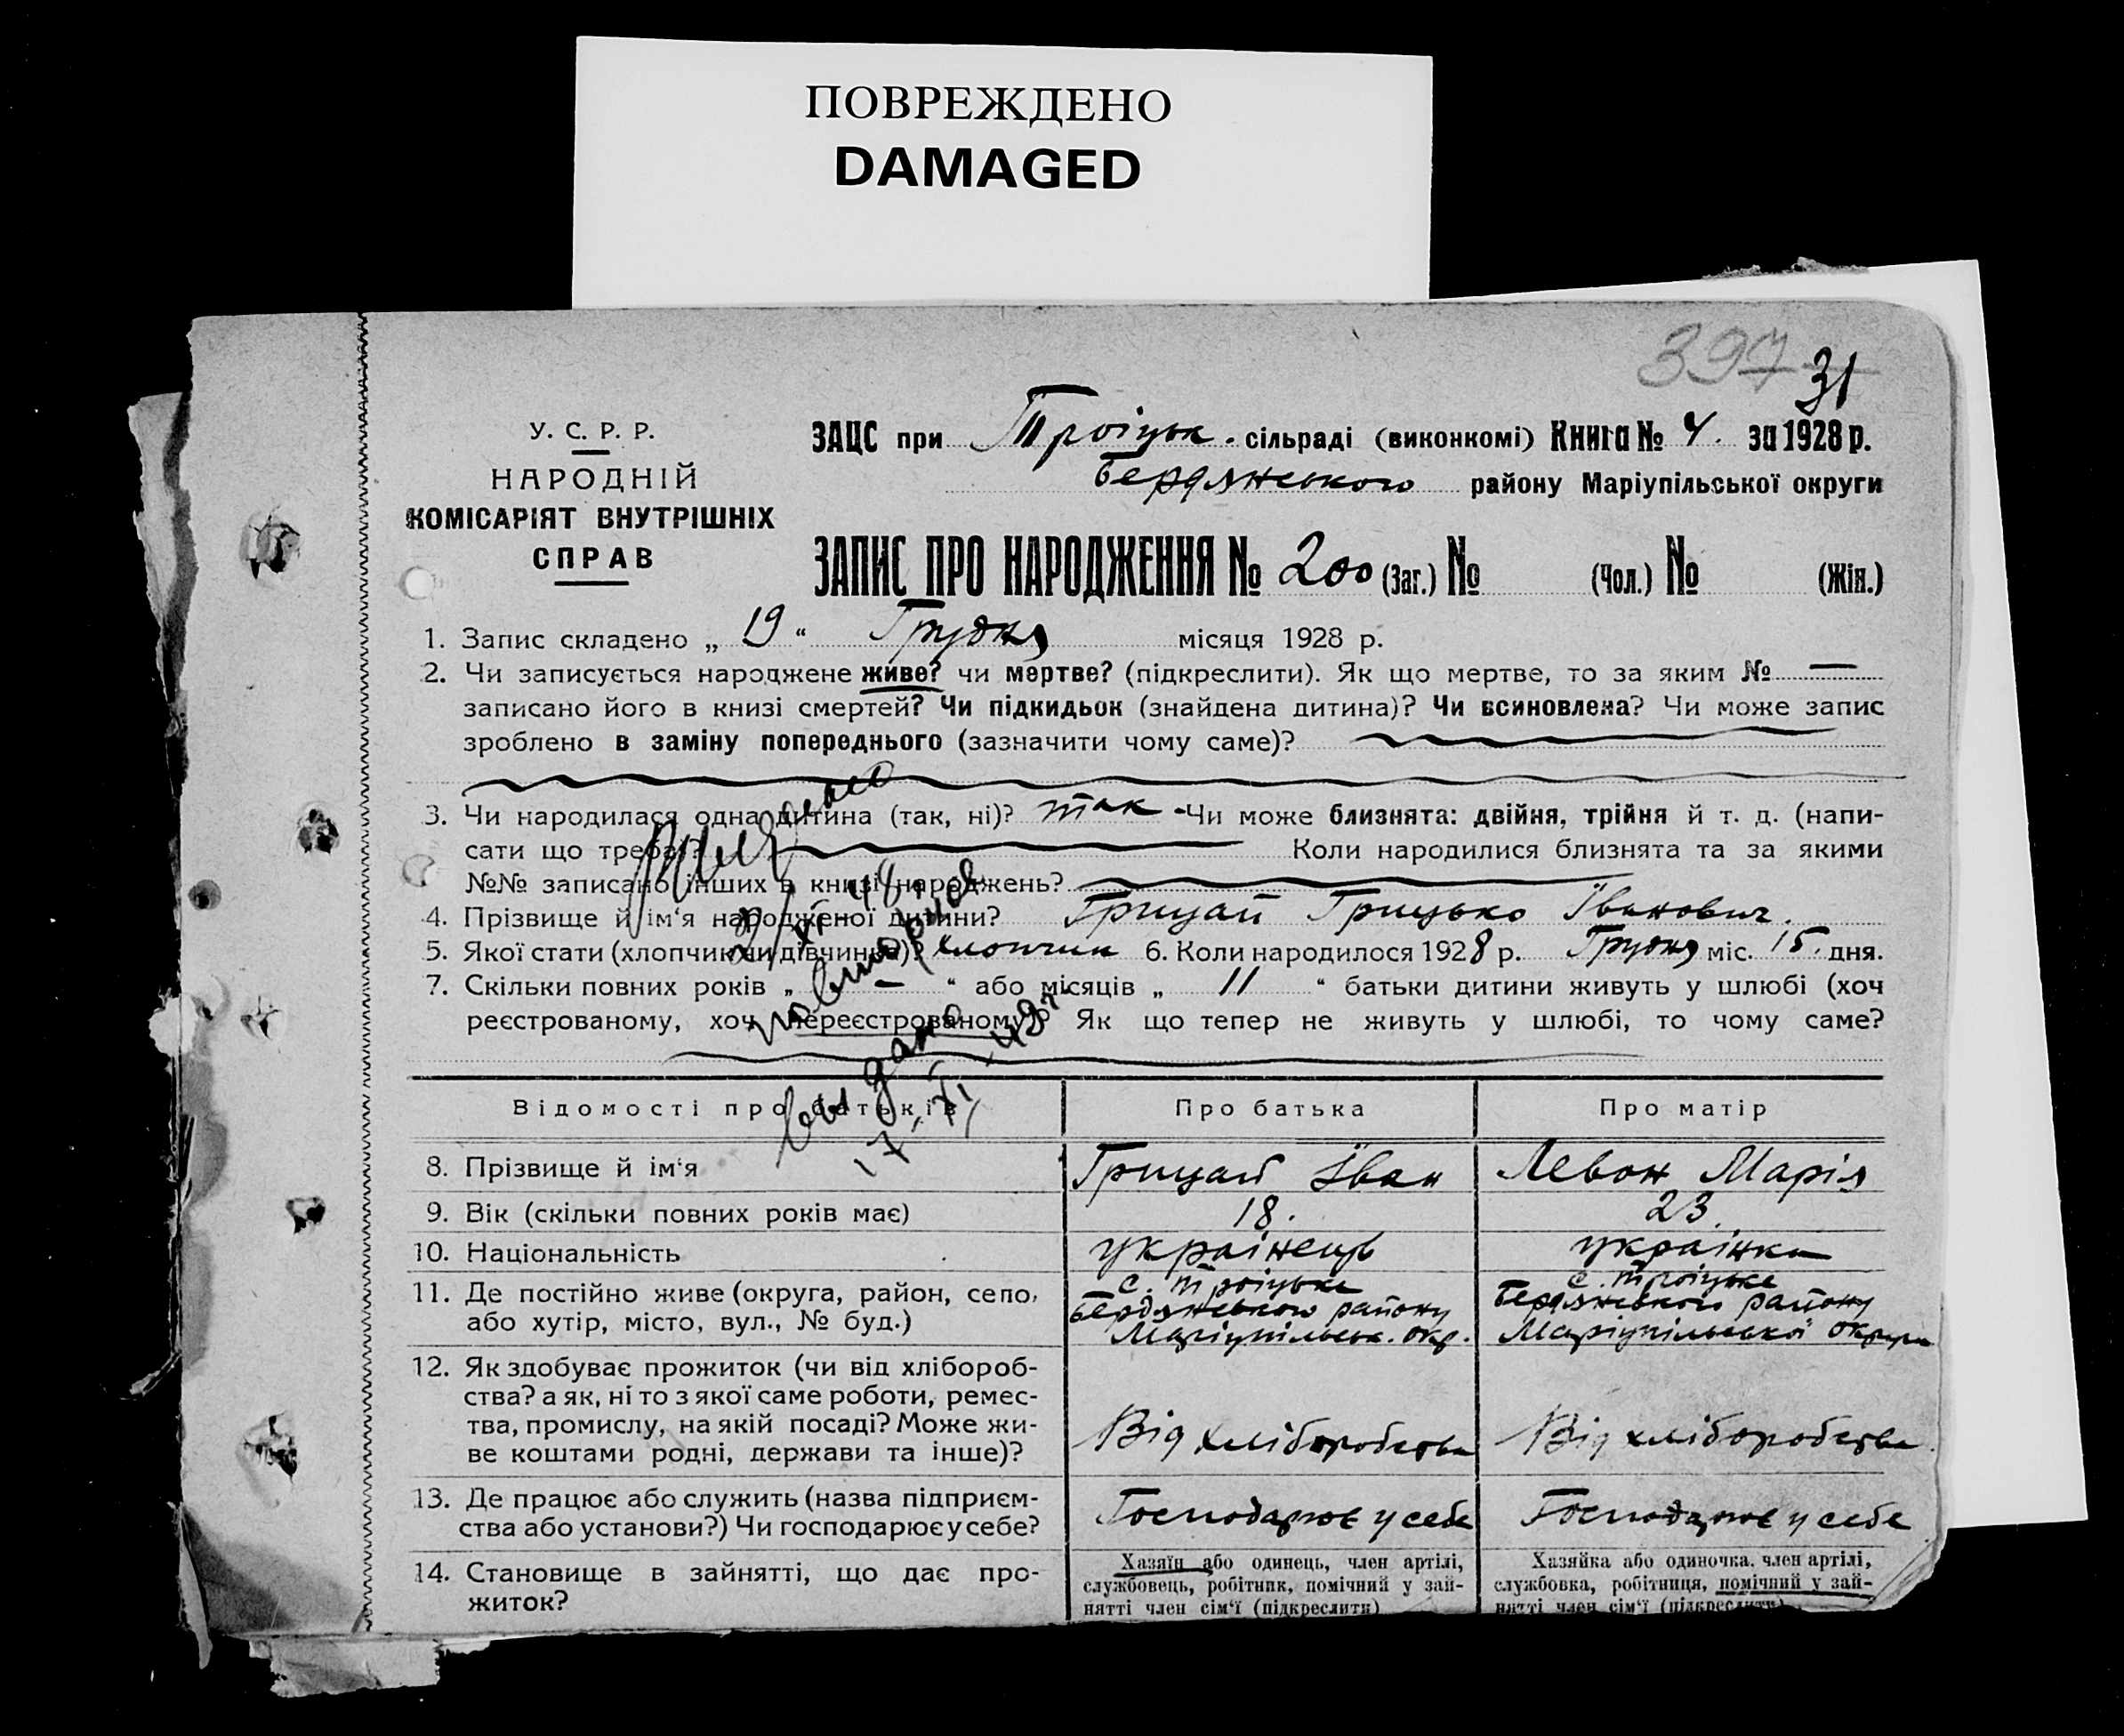 ПОВРЕЖДЕНО
DAMAGED
397
31
У. С. Р. Р.
НАРОДНІЙ
КОМІСАРІЯТ ВНУТРІШНІХ
СПРАВ
ЗАЦС при Троіцьк. сільраді (виконкомі) Книга № 4. за 1928 р.
Бердянського району Маріупільської округи
ЗАПИС ПРО НАРОДЖЕННЯ № 200 (Заг.) № (Чол.) № (Жін.)
1. Запис складено „ 19 “ Грудня місяця 1928 р.
2. Чи записується народжене живе? чи мертве? (підкреслити). Як що мертве, то за яким № —
записано його в книзі смертей? Чи підкидьок (знайдена дитина)? Чи всиновлена? Чи може запис
зроблено в заміну попереднього (зазначити чому саме)?
3. Чи народилася одна дитина (так, ні)? так Чи може близнята: двійня, трійня й т. д. (напи-
сати що треба)? Коли народилися близнята та за якими
№№ записано інших в книзі народжень?
4. Прізвище й ім‘я народженої дитини? Грицай Грицько Іванович.
5. Якої стати (хлопчик чи дівчинка)? хлопчик 6. Коли народилося 1928 р. Грудня міс. 15. дня.
7. Скільки повних років „ — “ або місяців „ 11 “ батьки дитини живуть у шлюбі (хоч
реєстрованому, хоч нереєстрованому)? Як що тепер не живуть у шлюбі, то чому саме?
дано
17/XI 49г
Відомості про батьків
Про батька
Про матір
8. Прізвище й ім‘я
Грицай Іван
Левон Марія
9. Вік (скільки повних років має)
18.
23.
10. Національність
українець
українка
11. Де постійно живе (округа, район, село,
або хутір, місто, вул., № буд.)
с. Троіцьке
Бердянського району
Маріупільськ. окр.
с. Троіцьке
Бердянського району
Маріупільської округи
12. Як здобуває прожиток (чи від хлібороб-
ства? а як, ні то з якої саме роботи, ремес-
тва, промислу, на якій посаді? Може жи-
ве коштами родні, держави та інше)?
Від хліборобства
Від хліборобства
13. Де працює або служить (назва підприєм-
ства або установи?) Чи господарює у себе?
Господарює у себе
Господарює у себе
14. Становище в зайнятті, що дає про-
житок?
Хазяїн або одинець, член артілі,
службовець, робітник, помічний у зай-
нятті член сім‘ї (підкреслити)
Хазяйка або одиночка, член артілі,
службовка, робітниця, помічний у зай-
нятті член сім‘ї (підкреслити)